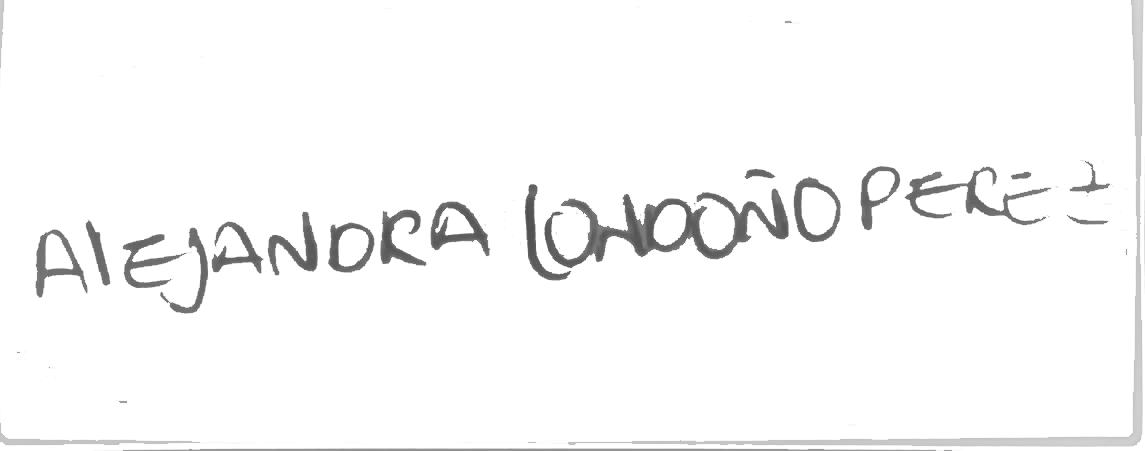 ALEJANDRA LONDOÑO PEREZ